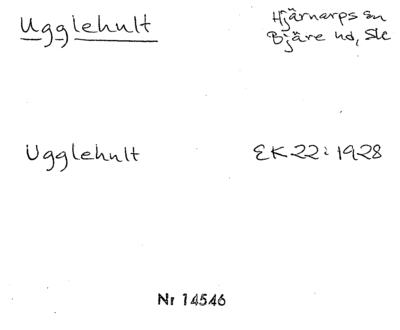 Ugglehult
Hjärnarps sn
Bjäre hd, Skåne
Ugglehult
EK 22: 1928
Nr 14546